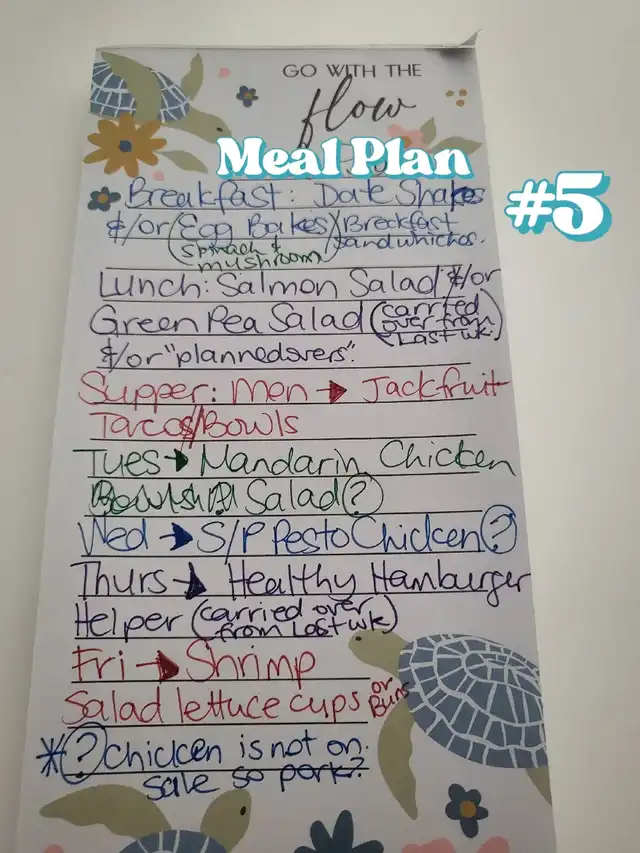 GO WITH THE
flow
Meal Plan
#5
Breakfast: Date Shakes
&/or (Egg Bakes) Breakfast
(spinach & mushroom) sandwhiches.
Lunch: Salmon Salad &/or
Green Pea Salad (carried over from Last wk.)
&/or "plannedovers".
Supper: Mon → Jackfruit
Tacos/Bowls
Tues → Mandarin Chicken
Salad (?)
Wed → S/P Pesto Chicken (?)
Thurs → Healthy Hamburger
Helper (carried over from Last wk)
Fri → Shrimp
Salad lettuce cups or Buns
*(?) chicken is not on
sale so pork?